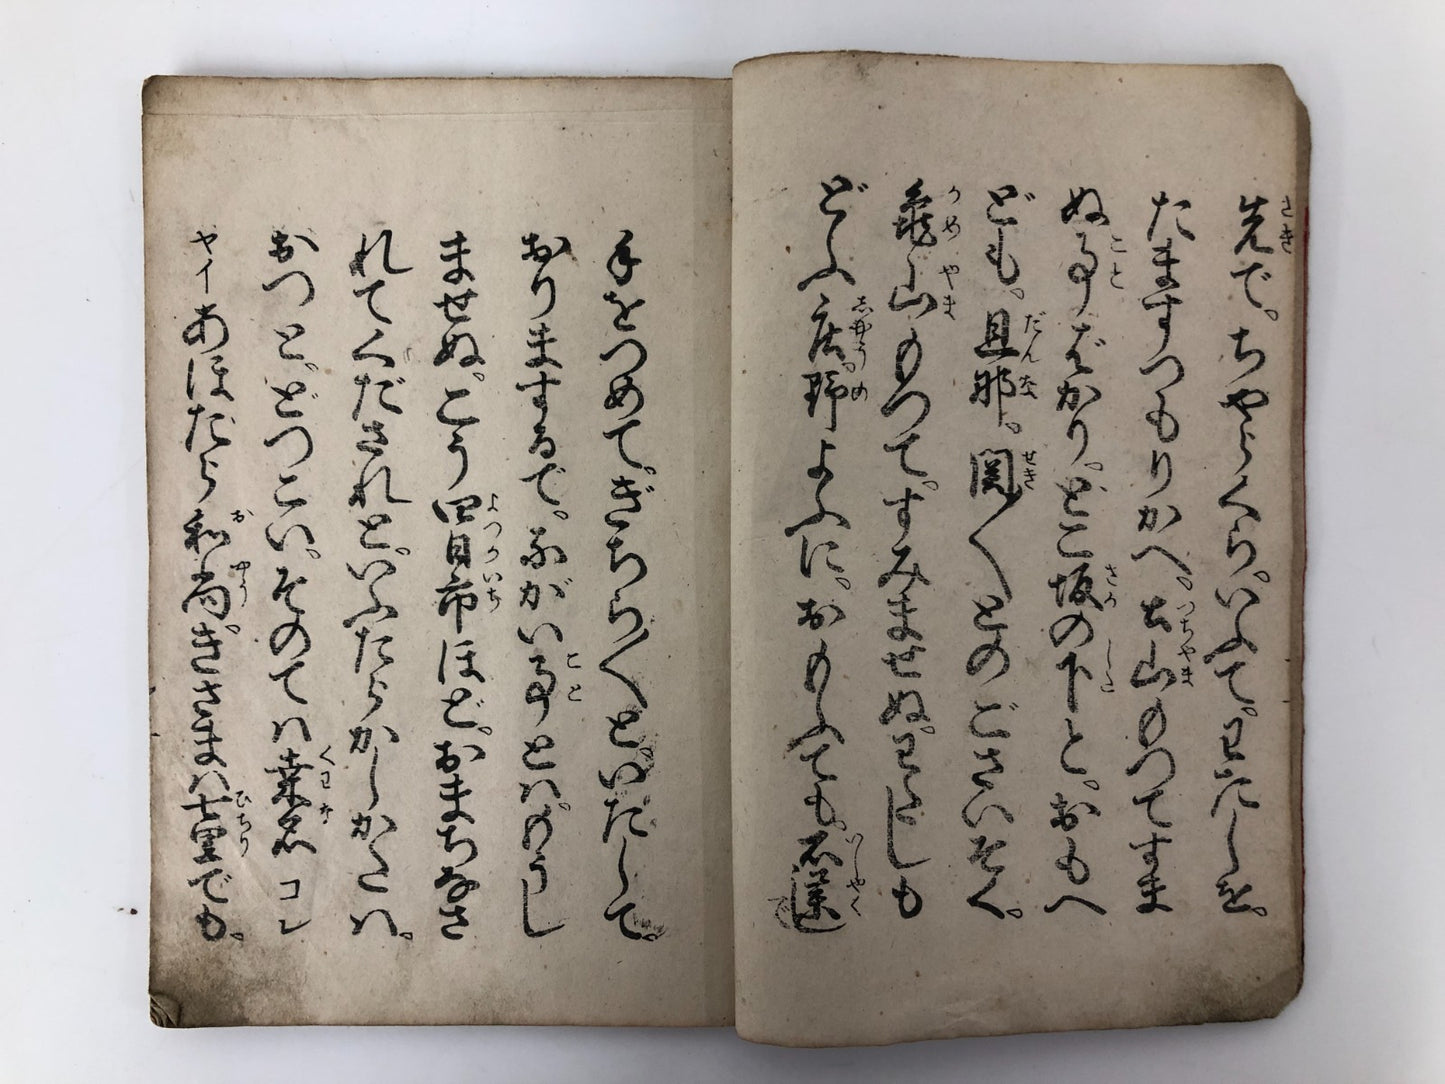 先で。ちやらくら。いふて。わたしを。
たますつもりかへ。土山もつてすま
ぬ事ばかり。どこ坂の下と。おもへ
ども。旦那。関〳〵とのごさいそく。
亀山もつて。すみませぬ。わたしも
どふ庄野よふに。おもふても。石薬で
手をつめて。ぎちら〳〵と。いたして。
おりまするで。ながい事とハ。もうし
ませぬ。こう四日市ほど。おまちなさ
れてくだされと。いふたらかしかたハ。
おつと。どつこい。そのてハ桑名コレ
ヤイあほたら和尚。きさまハ七里でも。